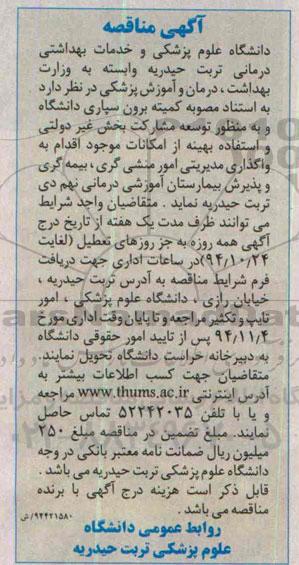 آگهی مناقصه
دانشگاه علوم پزشکی و خدمات بهداشتی
درمانی تربت حیدریه وابسته به وزارت
بهداشت ، درمان و آموزش پزشکی در نظر دارد
به استناد مصوبه کمیته برون سپاری دانشگاه
و به منظور توسعه مشارکت بخش غیر دولتی
و استفاده بهینه از امکانات موجود اقدام به
واگذاری مدیریتی امور منشی گری ، بیمه گری
و پذیرش بیمارستان آموزشی درمانی نهم دی
تربت حیدریه نماید . متقاضیان واجد شرایط
می توانند ظرف مدت یک هفته از تاریخ درج
آگهی همه روزه به جز روزهای تعطیل (لغایت
۹۴/۱۰/۲۴)در ساعات اداری جهت دریافت
فرم شرایط مناقصه به آدرس تربت حیدریه ،
خیابان رازی ، دانشگاه علوم پزشکی ، امور
تایپ و تکثیر مراجعه و تا پایان وقت اداری مورخ
۹۴/۱۱/۴ پس از تایید امور حقوقی دانشگاه
به دبیرخانه حراست دانشگاه تحویل نمایند.
متقاضیان جهت کسب اطلاعات بیشتر به
آدرس اینترنتی www.thums.ac.ir مراجعه
و یا با تلفن ۵۲۲۴۲۰۳۵ تماس حاصل
نمایند. مبلغ تضمین در مناقصه مبلغ ۲۵۰
میلیون ریال ضمانت نامه معتبر بانکی در وجه
دانشگاه علوم پزشکی تربت حیدریه می باشد .
قابل ذکر است هزینه درج آگهی با برنده
مناقصه می باشد .
۹۴۴۲۱۵۸۰/ش
روابط عمومی دانشگاه
علوم پزشکی تربت حیدریه